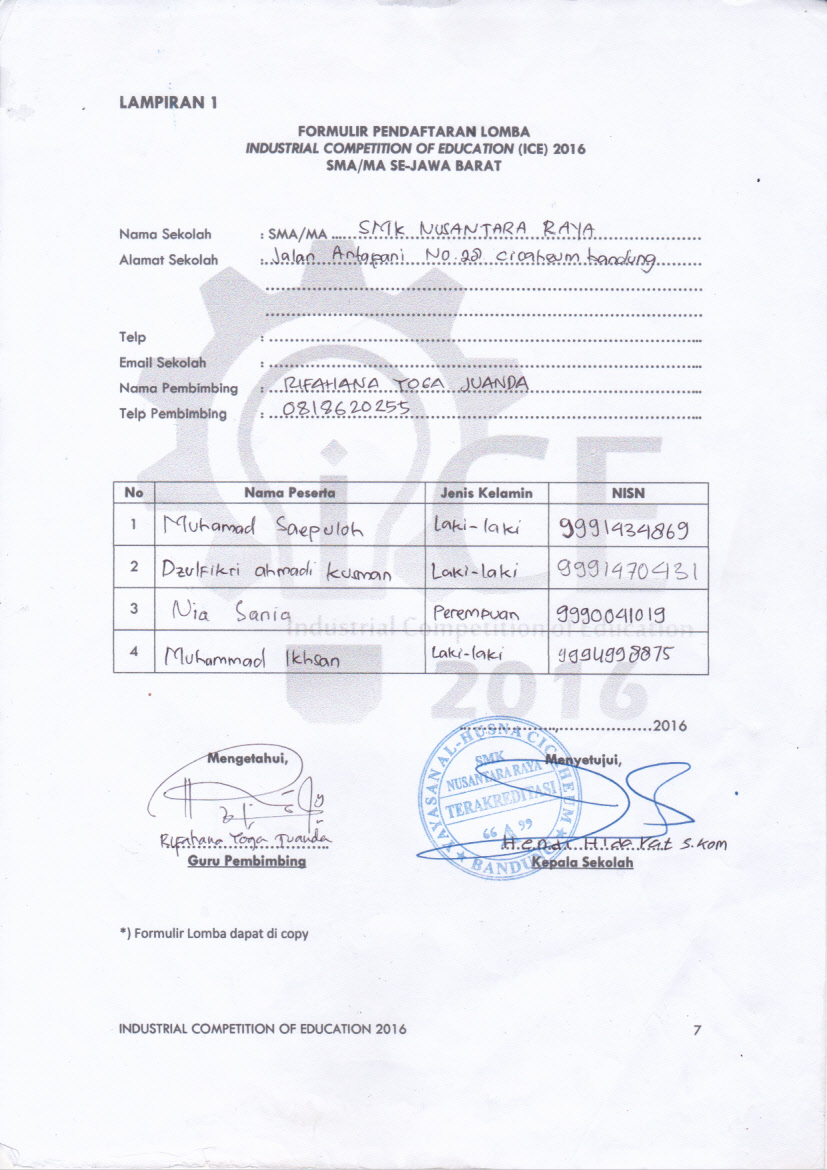 LAMPIRAN 1
FORMULIR PENDAFTARAN LOMBA
INDUSTRIAL COMPETITION OF EDUCATION (ICE) 2016
SMA/MA SE-JAWA BARAT
Nama Sekolah : SMA/MA .... SMK NUSANTARA RAYA
Alamat Sekolah : Jalan Antapani No. 28 cicaheum bandung
Telp :
Email Sekolah :
Nama Pembimbing : RIFAHANA YOGA JUANDA
Telp Pembimbing : 0818620255
No Nama Peserta Jenis Kelamin NISN
1 Muhamad Saepuloh Laki-laki 9991434869
2 Dzulfikri ahmadi kusman Laki-laki 9991470431
3 Nia Sania Perempuan 9990041019
4 Muhammad Ikhsan Laki-laki 9994998875
iCE
Industrial Competition of Education
2016
..............................2016
Mengetahui, Menyetujui,
YAYASAN AL-HUSNA CICAHEUM
SMK
NUSANTARA RAYA
TERAKREDITASI
66 99
BANDUNG
Rifahana Yoga Juanda Hendi Hidayat S.kom
Guru Pembimbing Kepala Sekolah
*) Formulir Lomba dapat di copy
INDUSTRIAL COMPETITION OF EDUCATION 2016 7